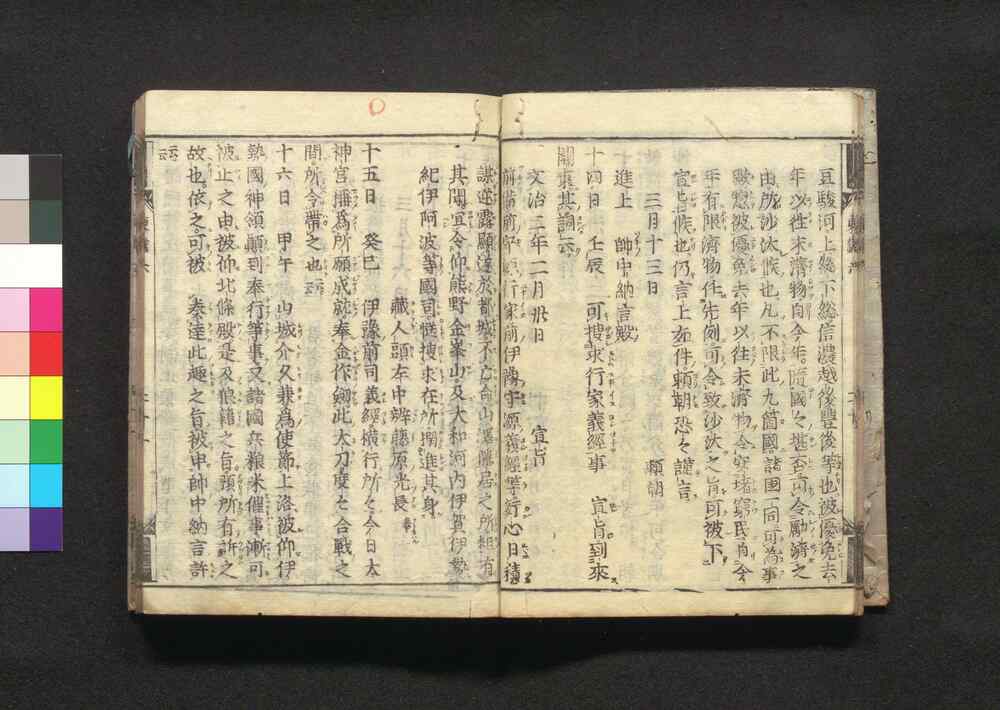 豆駿河上総下総信濃越後豊後等也被優免去
年以往未済物自今年随国々堪否可令励済之
由所沙汰候也凡不限此九箇国諸国一同可為事
歟惣被優免去年以往未済物令安堵窮民自今
年有限済物任先例可令致沙汰之旨可被下
宣旨候也仍言上如件頼朝恐々謹言
三月十三日　　頼朝
進上　帥中納言殿
十四日　壬辰　可捜求行家義経事　宣旨到来
関東其詞云
文治二年二月卅日　　宣旨
前備前守源行家前伊予守源義経等奸心日積
謀逆露顕遂於都城不亡命山沢離居之所粗有
其聞宜令仰熊野金峯山及大和河内伊賀伊勢
紀伊阿波等国司慥捜求在所搦進其身
蔵人頭左中辨藤原光長奉
十五日　癸巳　伊豫前司義経横行所々今日太
神宮播為所願成就奉金作剣此太刀度々合戦之
間所令帯之也云云
十六日　甲午　山城介久兼為使節上洛被仰伊
勢国神領顛倒奉行等事又諸国兵粮米催事漸可
被止之由被仰北條殿是及狼籍之旨預所有訴之
故也依之可被　奏達此趣之旨被申帥中納言許
云云